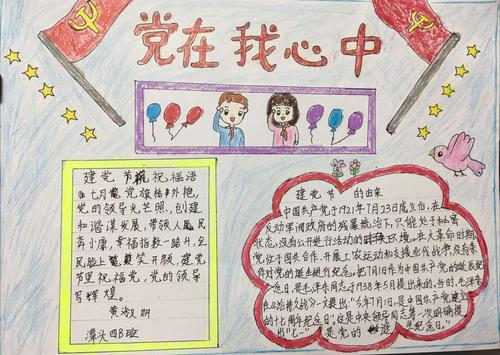 党在我心中
建党节祝福语
七月党旗格外艳，
党的领导光芒照，创建
和谐谋发展，带领人民
奔小康，幸福指数一路升，全
民脸上笑开颜，建党
节里祝福党，党的领导
写辉煌。
黄淑
潭头四B班
建党节的由来
中国共产党于1921年7月23日成立后，在
反动军阀政府的残暴统治下，只能处于秘密
状态，没有公开进行活动的环境。在大革命时期，
党忙于国共合作、开展工农运动和支援北伐战争，没有条
件对党的诞生进行纪念。把7月1日作为中国共产党的诞辰纪
念日，是毛泽东同志于1938年5月提出来的。当时，毛泽东
在《论持久战》一文提出：“今年7月1日，是中国共产党建立
的十七周年纪念日”。这是中央领导同志第一次明确提
出“七一”是党的诞生纪念日。